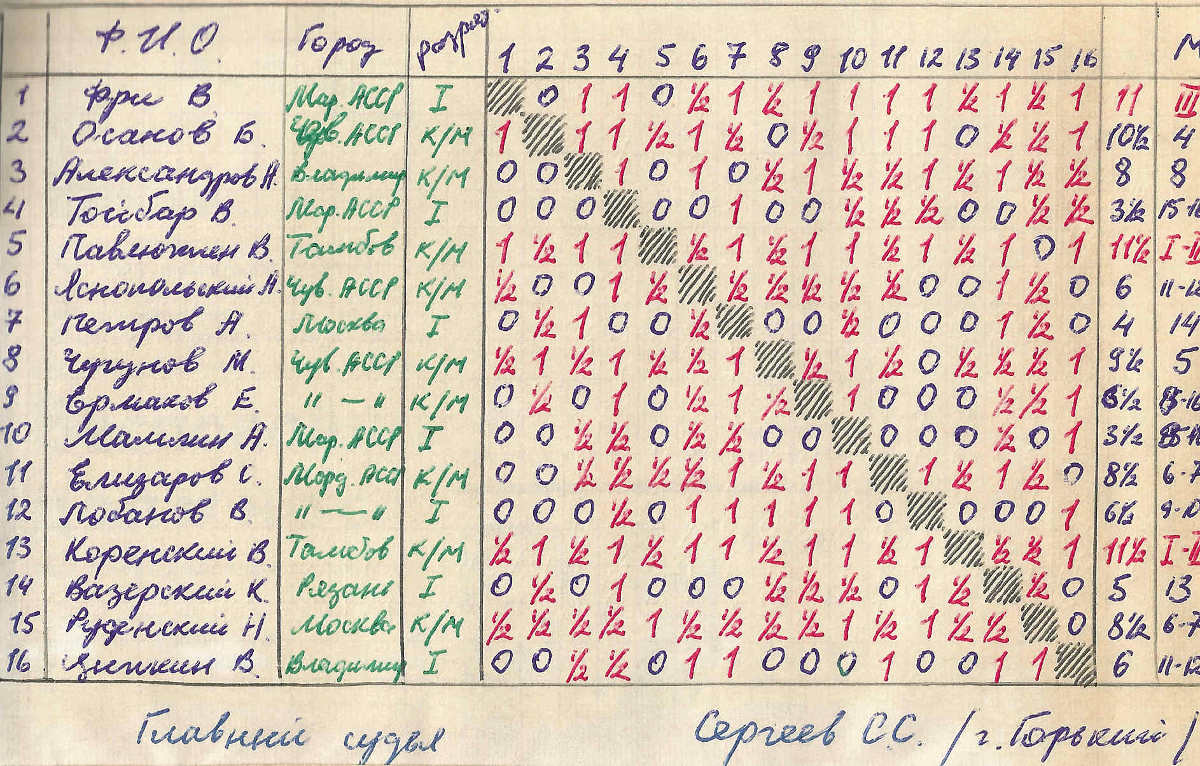 Ф.И.О. Город разряд 1 2 3 4 5 6 7 8 9 10 11 12 13 14 15 16 М
1 Фри В. Мар. АССР I 0 1 1 0 ½ 1 ½ 1 1 1 1 ½ 1 ½ 1 11 III
2 Осанов Б. Чув. АССР К/М 1 1 1 ½ 1 ½ 0 ½ 1 1 1 0 ½ ½ 1 10½ 4
3 Александров А. Владимир К/М 0 0 1 0 1 0 ½ 1 ½ ½ 1 ½ 1 ½ ½ 8 8
4 В. Мар. АССР I 0 0 0 0 0 1 0 0 ½ ½ ½ 0 0 ½ ½ 3½ 15-1
5 В. Тамбов К/М 1 ½ 1 1 ½ 1 ½ 1 1 ½ 1 ½ 1 0 1 11½ I-II
6 Яснопольский А. Чув. АССР К/М ½ 0 0 1 ½ ½ ½ ½ ½ ½ 0 0 1 ½ 0 6 11-12
7 А. Москва I 0 ½ 1 0 0 ½ 0 0 ½ 0 0 0 1 ½ 0 4 14
8 Чугунов М. Чув. АССР К/М ½ 1 ½ 1 ½ ½ 1 ½ 1 ½ 0 ½ ½ ½ 1 9½ 5
9 Ермаков Е. " — " К/М 0 ½ 0 1 0 ½ 1 ½ 1 0 0 0 ½ ½ 1 6½
10 Мамлин А. Мар. АССР I 0 0 ½ ½ 0 ½ ½ 0 0 0 0 0 ½ 0 1 3½
11 Елизаров С. Морд. АССР К/М 0 0 ½ ½ ½ ½ 1 ½ 1 1 1 ½ 1 ½ 0 8½ 6-7
12 Лобанов В. " — " I 0 0 0 ½ 0 1 1 1 1 1 0 0 0 0 1 6½ 9-10
13 Коренский В. Тамбов К/М ½ 1 ½ 1 ½ 1 1 ½ 1 1 ½ 1 ½ ½ 1 11½ I-II
14 Вазерский К. Рязань I 0 ½ 0 1 0 0 0 ½ ½ ½ 0 1 ½ ½ 0 5 13
15 Руденский Н. Москва К/М ½ ½ ½ ½ 1 ½ ½ ½ ½ 1 ½ 1 ½ ½ 0 8½ 6-7
16 В. Владимир I 0 0 ½ ½ 0 1 1 0 0 0 1 0 0 1 1 6 11-12
Главный судья Сергеев С.С. /г. Горький/